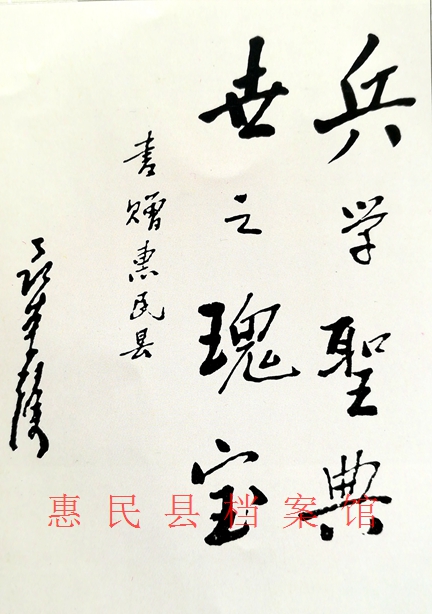 兵学聖典
世之瑰宝
書赠惠民县
惠民县档案馆